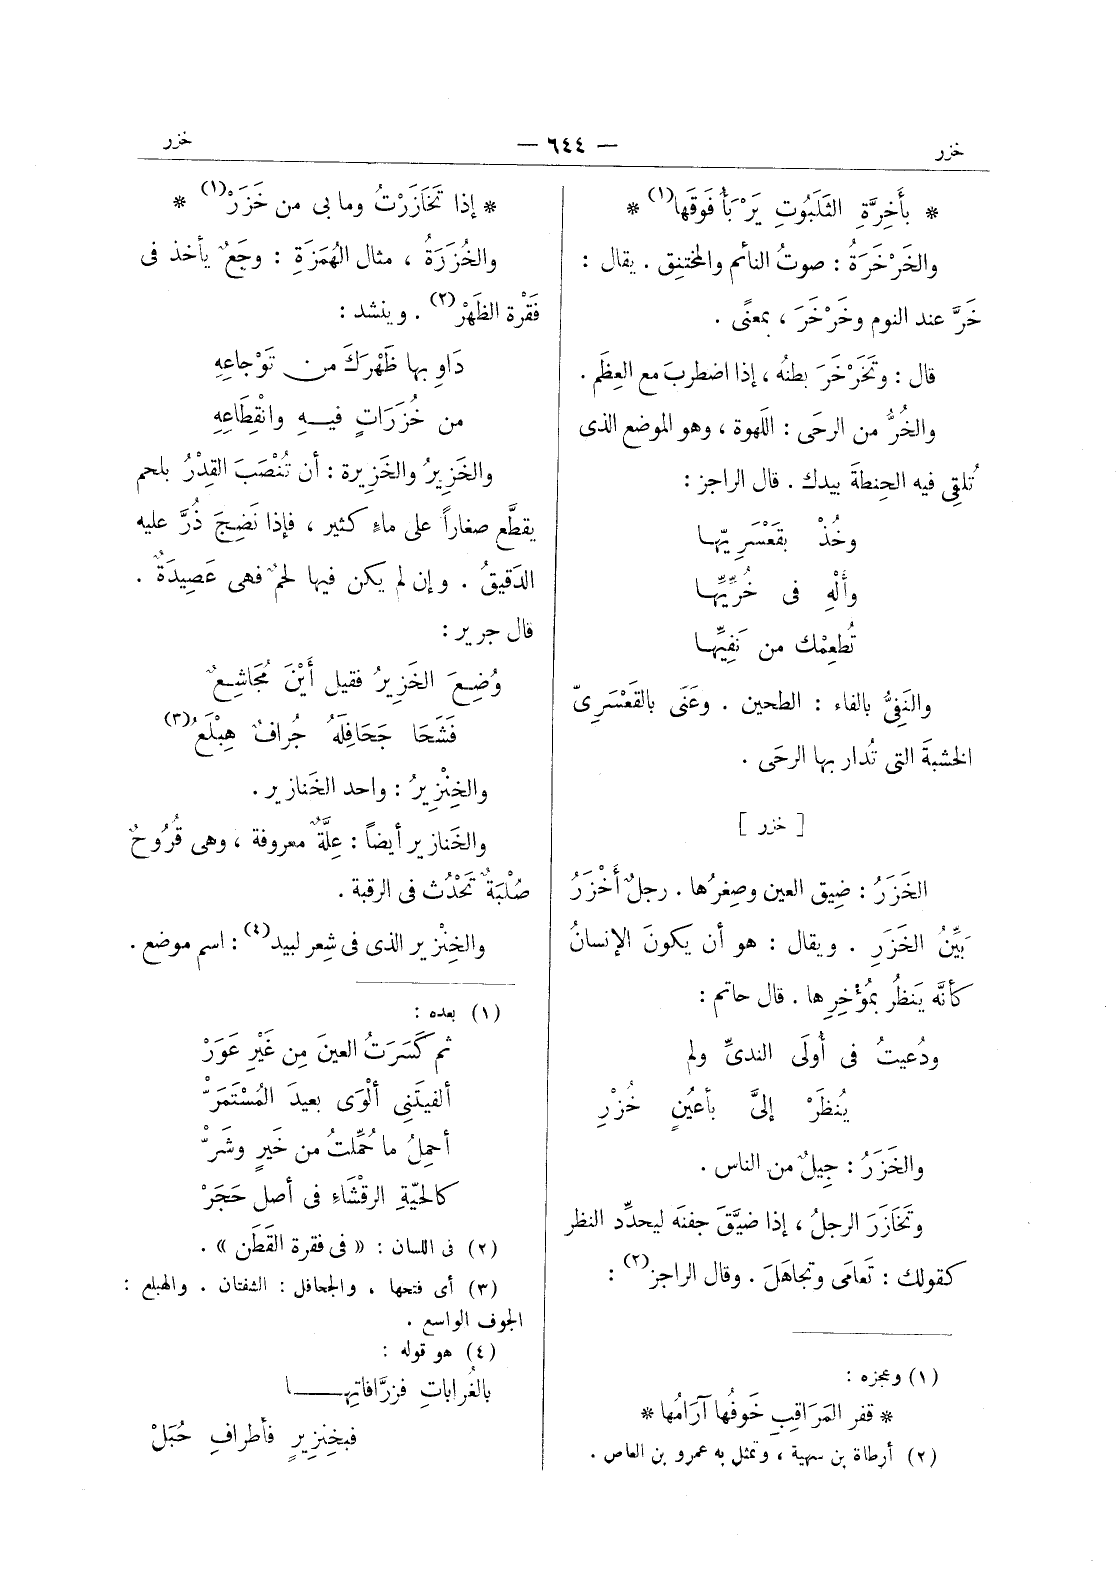 خزر
— ٦٤٤ —
خزر
* بِأَخِرَّةِ الثَّلَبُوتِ يَرْبَأُ فَوقَها(١) *
والخَرْخَرَةُ : صوتُ النائم والمختنِق . يقال :
خَرَّ عند النوم وخَرْخَرَ ، بمعنًى .
قال : وتَخَرْخَرَ بطنُه ، إذا اضطربَ مع العِظَم .
والخُرُّ من الرحَى : اللَهوة ، وهو الموضع الذى
تُلقِى فيه الحِنطةَ بيدك . قال الراجز :
وخُذْ بقَعْسَرِيّها
وأَلْهِ فى خُرِّيِّها
تُطعِمْك من نَفِيِّها
والنَفِىُّ بالفاء : الطحين . وعَنَى بالقَعْسَرِىّ
الخشبةَ التى تُدار بها الرحَى .
[ خزر ]
الخَزَرُ : ضِيق العين وصِغرُها . رجلٌ أَخْزَرُ
بَيِّنُ الخَزَرِ . ويقال : هو أن يكونَ الإنسانُ
كأنَّه يَنظُر بمُؤْخِرِها . قال حاتم :
ودُعيتُ فى أُولَى الندىِّ ولم
يُنظَرْ إلىَّ بأعيُنٍ خُزْرِ
والخَزَرُ : جِيلٌ من الناس .
وتَخَازَرَ الرجلُ ، إذا ضيَّقَ جفنَه ليحدِّد النظر
كقولك : تَعامَى وتجاهَلَ . وقال الراجز(٢) :
(١) وعجزه :
* قفر المَرَاقِبِ خَوفُها آرَامُها *
(٢) أرطاة بن سهية ، وتمثل به عمرو بن العاص .
* إذا تَخَازَرْتُ وما بى من خَزَرْ(١) *
والخُزَرَةُ ، مثال الهُمَزَةِ : وجَعٌ يأخذ فى
فَقْرة الظَهْر(٢) . وينشد :
دَاوِ بها ظَهْرَكَ من تَوْجاعِهِ
من خُزَرَاتٍ فيهِ وانْقِطَاعِهِ
والخَزِيرُ والخَزِيرة : أن تُنْصَبَ القِدْرُ بلحم
يقطَّع صغاراً على ماءٍ كثير ، فإذا نَضِجَ ذُرَّ عليه
الدَقيقُ . وإن لم يكن فيها لحمٌ فهى عَصِيدَةٌ .
قال جرير :
وُضِعَ الخَزِيرُ فقيل أَيْنَ مُجَاشِعٌ
فَشَحَا جَحَافِلَهُ جُرافٌ هِبْلَعُ(٣)
والخِنْزِيرُ : واحد الخَنازير .
والخَنازير أيضاً : عِلَّةٌ معروفة ، وهى قُرُوحٌ
صُلْبَةٌ تَحْدُث فى الرقبة .
والخِنْزير الذى فى شِعر لبيد(٤) : اسم موضع .
(١) بعده :
ثم كَسَرَتُ العينَ مِن غَيْرِ عَوَرْ
ألفيتَنِى أَلْوَى بعيدَ المُسْتَمَرّْ
أحمِلُ ما حُمِّلتُ من خَيرٍ وشَرّْ
كالحيّةِ الرقْشَاءِ فى أصل حَجَرْ
(٢) فى اللسان : « فى فقرة القَطَن » .
(٣) أى فتحها ، والجحافل : الشفتان . والهبلع :
الجوف الواسع .
(٤) هو قوله :
بالغُراباتِ فزرَّافاتِهـــا
فبخِنزيرٍ فأطرافِ حُبَلْ